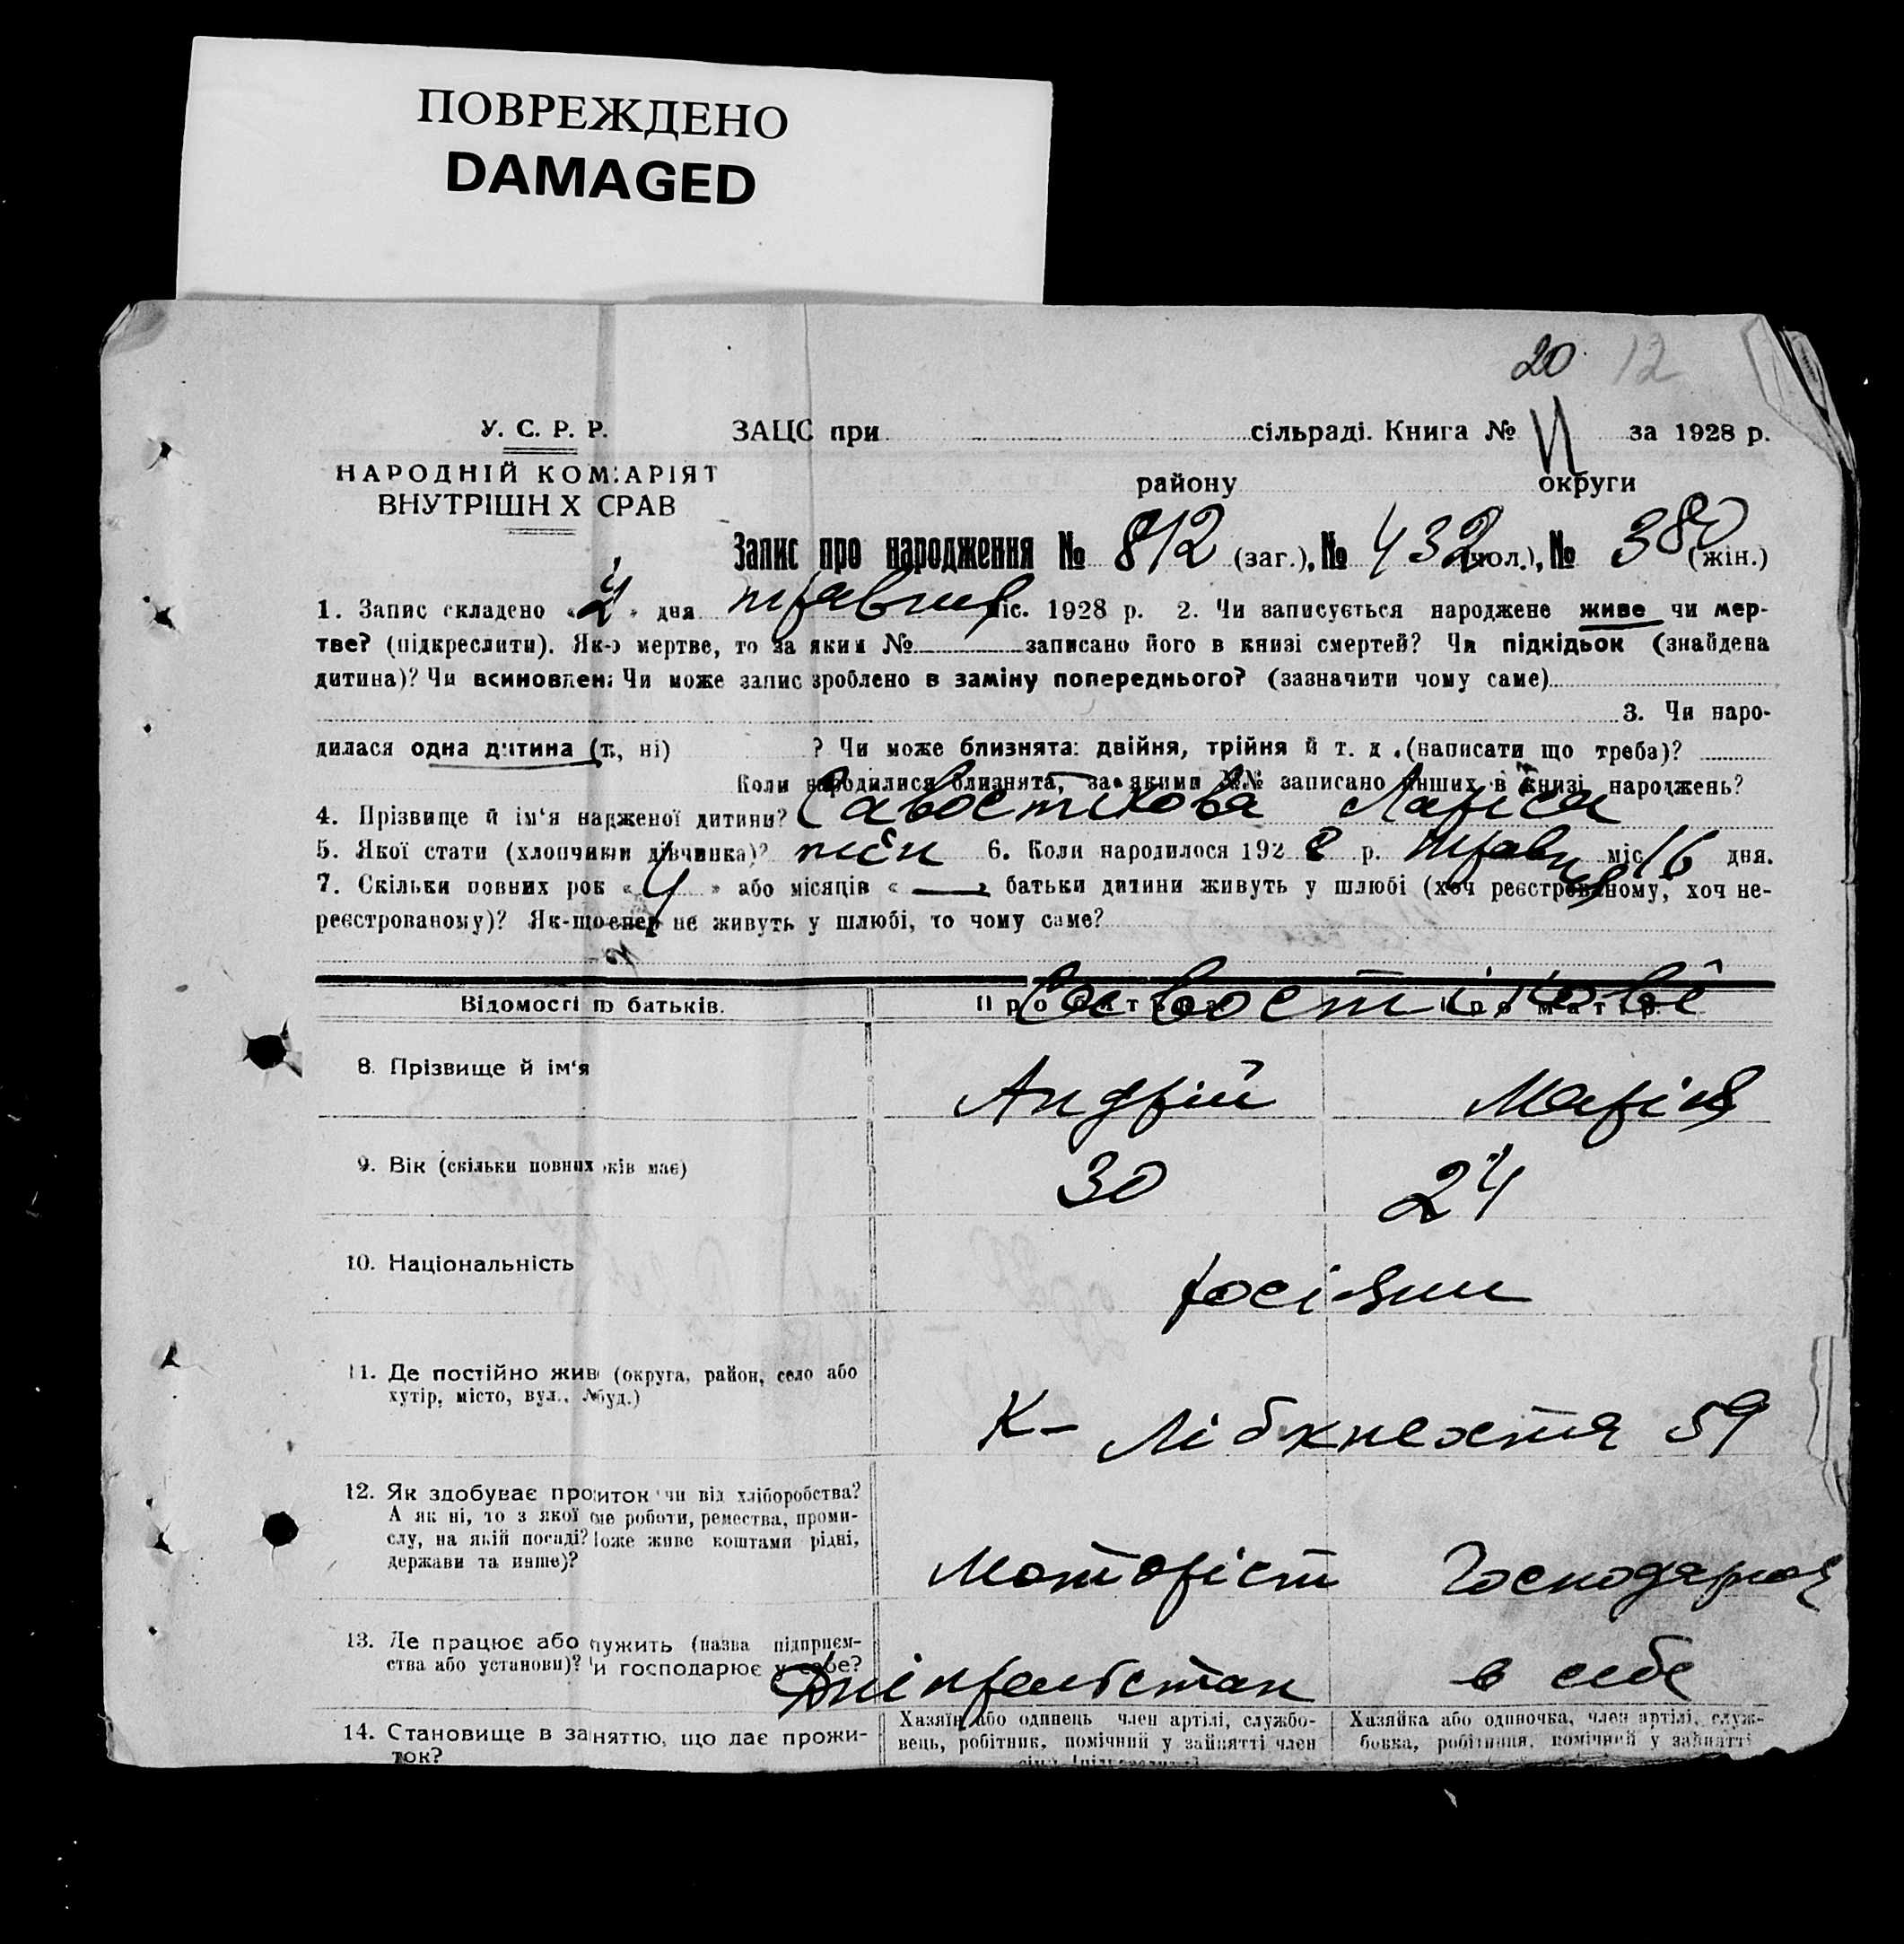 ПОВРЕЖДЕНО
DAMAGED
20 12
У. С. Р. Р. ЗАЦС при сільраді. Книга № за 1928 р.
НАРОДНІЙ КОМ АРІЯТ району округи
ВНУТРІШН Х СРАВ
Запис про народження № 812 (заг.), № 432 (чол.), № 380 (жін.)
1. Запис складено « » дня травня міс. 1928 р. 2. Чи записується народжене живе чи мер-
тве? (підкреслити). Як-о мертве, то за яким № записано його в книзі смертей? Чи підкідьок (знайдена
дитина)? Чи всиновлен Чи може запис зроблено в заміну попереднього? (зазначити чому саме)
3. Чи наро-
дилася одна дитина (т, ні) ? Чи може близнята: двійня, трійня й т. д. (написати що треба)?
Коли народилися близнята, за якими №№ записано инших в книзі народжень?
4. Прізвище й ім'я нарженої дитини? Савостікова Ларіса
5. Якої стати (хлопчик и дівчинка)? жін 6. Коли народилося 1928 р. травня міс 16 дня.
7. Скільки повних рок « 4 » або місяців « — » батьки дитини живуть у шлюбі (хоч реєстрованому, хоч не-
реєстрованому)? Як-що не живуть у шлюбі, то чому саме?
Савостікові
Відомості п о батьків. Про батька Про матір
8. Прізвище й ім'я Андрій Марія
9. Вік (скільки повних ків має) 30 24
10. Національність росіяни
11. Де постійно жив (округа, район, село або
хутір, місто, вул., № буд.) К- Лібкнехта 59
12. Як здобуває про иток чи від хліборобства?
А як ні, то з якої ме роботи, ремества, проми-
слу, на якій посаді? оже живе коштами рідні,
держави та инше)? Моторіст Господарює
13. Де працює або лужить (назва підприєм-
ства або установи)? и господарює у себе? в себе
14. Становище в за няттю, що дає прожи-
ток?
Хазяїн або одинець член артілі, службо-
вець, робітник, помічний у зайнятті член
Хазяйка або одиночка, член артілі, служ-
бовка, робітниця, помічний у зайнятті